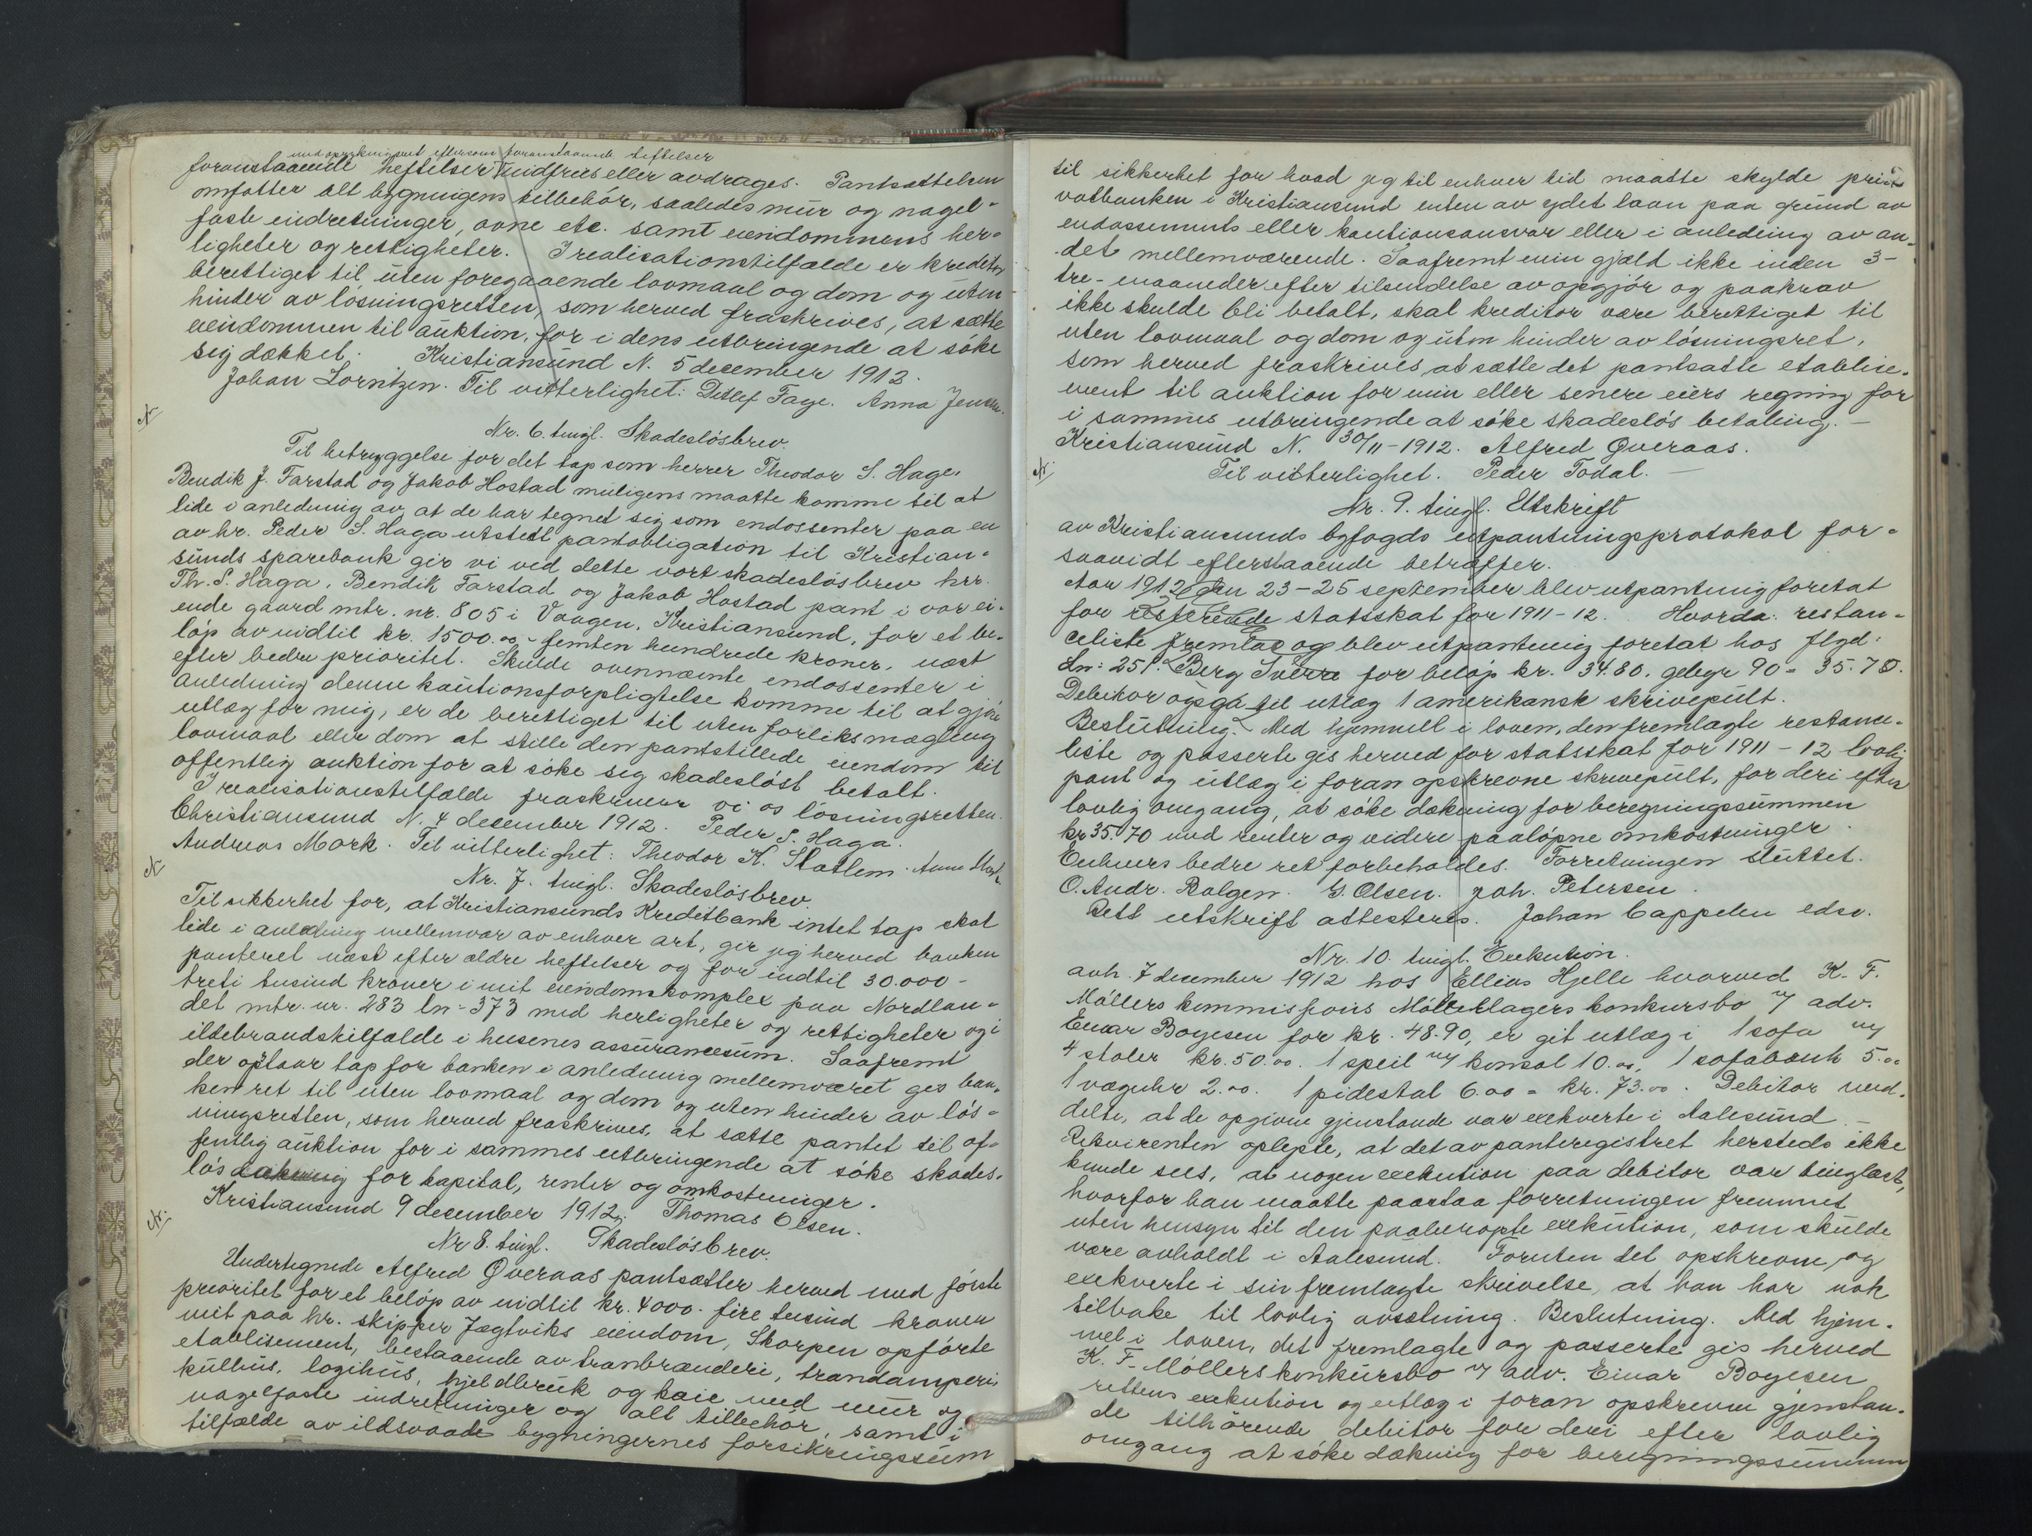 med oprykningsret eftersom foranstaaende heftelser
foranstaaende heftelser indfries eller avdrages. Pantsættelsen
omfatter alt bygningens tilbehör, saaledes mur og nagel-
faste indretninger, ovne etc. samt eiendommens her-
ligheter og rettigheter. I realisationstilfælde er kreditor
berettiget til uten foregaaende lovmaal og dom og uten
hinder av lösningsretten, som herved fraskrives, at sætte
eiendommen til auktion, for i dens utbringende at söke
sig dækket. Kristiansund N. 5 december 1912.
Johan Lorntzen. Til vitterlighet: Detlef Faye. Anna Jensen.
N
Nr. 6. tingl. Skadeslösbrev
Til betryggelse for det tap som herrer Theodor S. Haga,
Bendik J. Farstad og Jakob Hostad muligens maatte komme til at
lide i anledning av at de har tegnet sig som endossenter paa en
av hr. Peder S. Haga utstedt pantobligation til Kristian-
sunds sparebank gir vi ved dette vort skadeslösbrev hrr.
Th. S. Haga, Bendik Farstad og Jakob Hostad pant i vor ei-
ende gaard mtr. nr. 805 i Vaagen, Kristiansund, for et be-
löp av indtil kr. 1500.00 - femten hundrede kroner, næst
efter bedre prioritet. Skulde ovennævnte endossenter i
anledning denne kautionsforpligtelse komme til at gjöre
utlæg for mig, er de berettiget til uten forliksmægling
lovmaal eller dom at stille den pantstillede eiendom til
offentlig auktion for at söke sig skadeslöst betalt.
I realisationstilfælde fraskriver vi os lösningsretten.
Christiansund N. 4 december 1912. Peder S. Haga.
Andreas Mork. Til vitterlighet: Theodor K. Statlem. Anna Mork
N
Nr. 7. tingl. Skadeslösbrev.
Til sikkerhet for, at Kristiansunds Kreditbank intet tap skal
lide i anledning mellemvær av enhver art, gir jeg herved banken
panteret næst efter ældre heftelser og for indtil 30.000 -
treti tusind kroner i mit eiendomskomplex paa Nordlan-
det mtr. nr. 283 ln- 373 med herligheter og rettigheter og i
ildebrandstilfælde i husenes assurancesum. Saafremt
der opstaar tap for banken i anledning mellemværet gis ban-
ken ret til uten lovmaal og dom og uten hinder av lös-
ningsretten, som herved fraskrives, at sætte pantet til of-
fentlig auktion for i sammes utbringende at söke skades-
lös dækning for kapital, renter og omkostninger.
Kristiansund 9 december 1912. Thomas Olsen.
N.
Nr 8. tingl. Skadeslösbrev.
Undertegnede Alfred Överaas pantsætter herved med förste
prioritet for et belöp av indtil kr. 4000. fire tusind kroner
mit paa hr. skipper Jægtviks eiendom, Skorpen opförte
etablisement, bestaaende av tranbrænderi, trandamperi,
kulhus, logihus, hjeldbruk og kaie med mur og
nagelfaste indretninger og alt tilbehör, samt i
tilfælde av ildsvaade bygningernes forsikringssum
til sikkerhet for hvad jeg til enhver tid maatte skylde pri-
vatbanken i Kristiansund enten av ydet laan paa grund av
endossements eller kautionsansvar eller i anledning av an-
det mellemværende. Saafremt min gjæld ikke inden 3-
tre- maaneder efter tilsendelse av opgjör og paakrav
ikke skulde bli betalt, skal kreditor være berettiget til
uten lovmaal og dom og uten hinder av lösningsret,
som herved fraskrives, at sætte det pantsatte etablise-
ment til auktion for min eller senere eiers regning for
i sammes utbringende at söke skadeslös betaling. -
Kristiansund N. 30/11-1912. Alfred Överaas.
Til vitterlighet. Peder Todal. -
N.
Nr. 9. tingl. Utskrift
av Kristiansunds byfogds utpantningsprotokol for-
saavidt efterstaaende betræffer.
Aar 1912 den 23-25 september blev utpantning foretat
for resterende statsskat for 1911-12. Hvorda: restan-
celiste fremlaa og blev utpantning foretat hos flgd:
Ln: 251. Berg Sverre for belöp kr. 34.80. gebyr 90 = 35.70.
Debitor opga til utlæg 1 amerikansk skrivepult.
Beslutning. Med hjemmel i loven, den fremlagte restance-
liste og passerte gis herved for statsskat for 1911-12 lovlig
pant og utlæg i foran opskrevne skrivepult, for deri efter
lovlig omgang, at söke dækning for beregningssummen
kr 35.70 med renter og videre paalöpne omkostninger.
Enhvers bedre ret forbeholdes. Forretningen sluttet.
O. Andr. Bolgen. G. Olsen. Joh. Petersen.
Rett utskrift attesteres. Johan Cappelen edsv.
Nr. 10. tingl. Exekution.
avh. 7 december 1912 hos Ellius Hjelle hvorved K. F.
Möllers kommisjons Möbellagers konkursbo v/ adv.
Einar Boyesen for kr. 48.90, er git utlæg i 1 sofa m/
4 stoler kr. 50.00. 1 speil m/ konsol 10.00, 1 sofabenk 5.00
1 væguhr 2.00. 1 pidestal 6.00 = kr. 73.00. Debitor med-
delte, at de opgivne gjenstande var exekverte i Aalesund. -
Rekvirenten oplyste, at det av panteregistret hersteds ikke
kunde sees, at nogen exekution paa debitor var tinglæst,
hvorfor han maatte paastaa forretningen fremmet
uten hensyn til den paaberopte exekution, som skulde
være avholdt i Aalesund. Foruten det opskrevne og
exekverte i sin fremlagte skrivelse, at han har nok
tilbake til lovlig avsetning. Beslutning. Med hjem-
mel i loven, det fremlagte og passerte gis herved
K. F. Möllers konkursbo v/ adv. Einar Boyesen
rettens exekution og utlæg i foran opskrevne gjenstan-
de tilhörende debitor for deri efter lovlig
omgang at söke dækning for beregningssummen